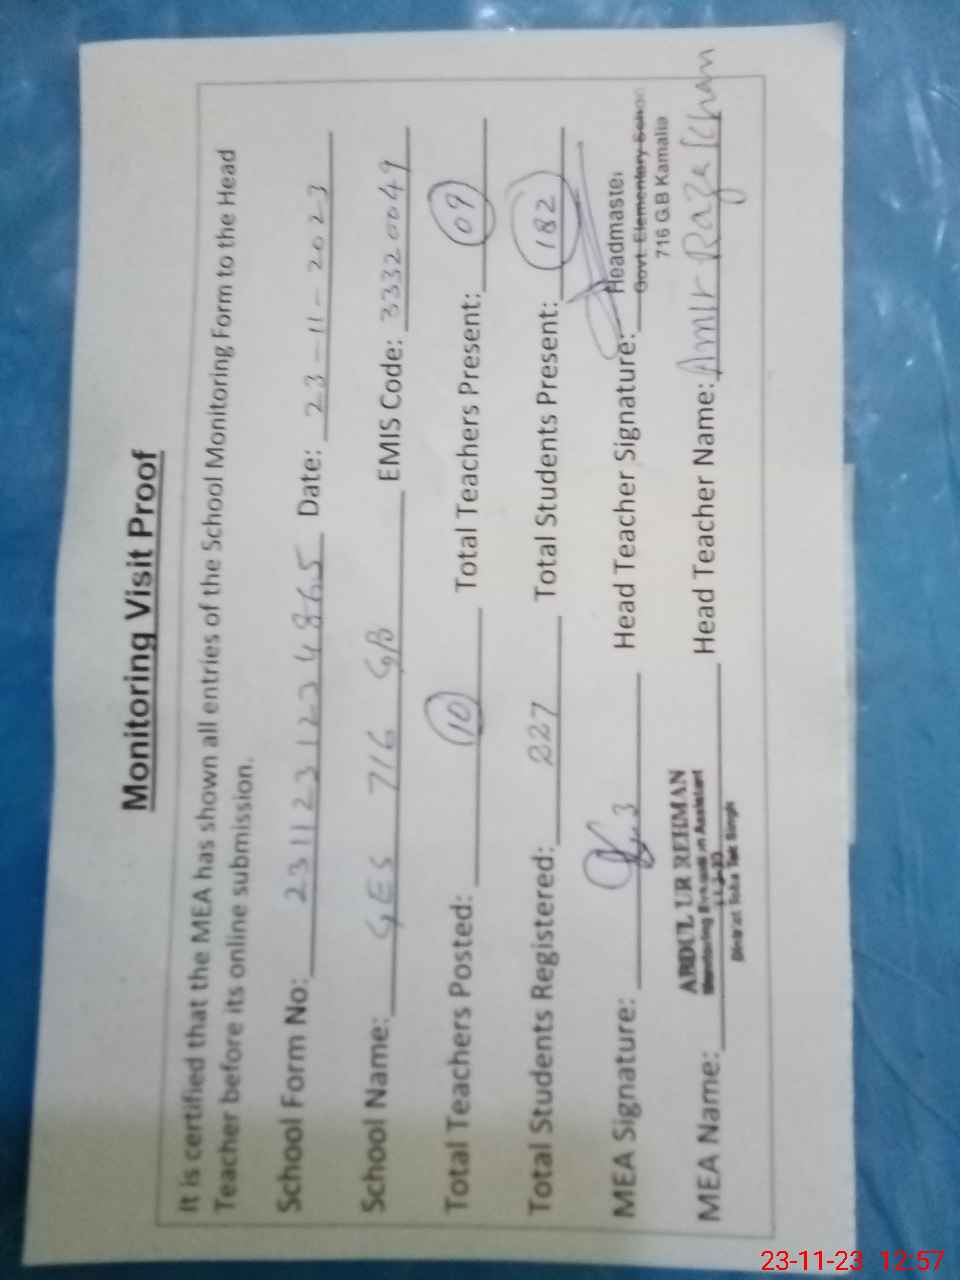 Monitoring Visit Proof
It is certified that the MEA has shown all entries of the School Monitoring Form to the Head
Teacher before its online submission.
School Form No: 2311231234865 Date: 23-11-2023
School Name: GES 716 GB EMIS Code: 33320049
Total Teachers Posted: 10 Total Teachers Present: 09
Total Students Registered: 227 Total Students Present: 182
MEA Signature: Head Teacher Signature:
Headmaster
Govt. Elementary School
716 G.B Kamalia
MEA Name: Head Teacher Name: Amir Raza Khan
ABDUL UR REHMAN
Monitoring Assistant
Tek Singh
23-11-23 12:57